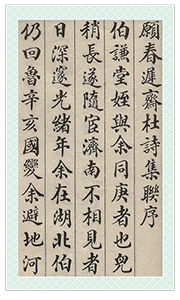 願春遲齋杜詩集聯序
伯謙堂姪與余同庚者也兒
稍長遂隨宦濟南不相見者
日深邃光緒年余在湖北伯
仍回魯辛亥國變余避地河